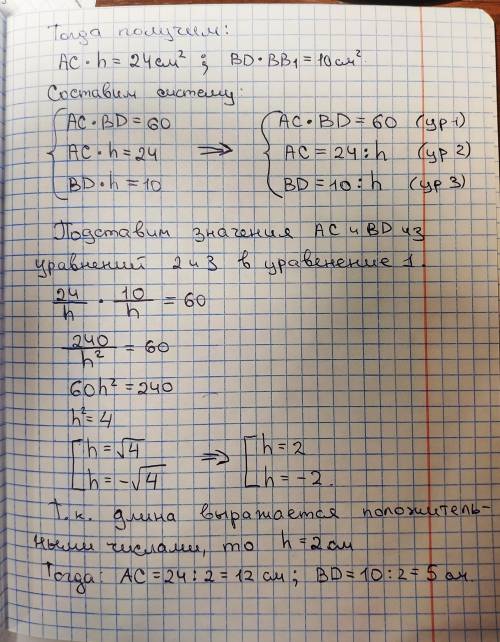 Тогда получим:
AC · h = 24 см² ; BD · BB₁ = 10 см².
Составим систему:
{ AC · BD = 60 ⇒ { AC · BD = 60 (ур 1)
AC · h = 24 AC = 24 : h (ур 2)
BD · h = 10 BD = 10 : h (ур 3)
Подставим значения AC и BD из
уравнений 2 и 3 в уравенение 1.
24/h · 10/h = 60
240/h² = 60
60h² = 240
h² = 4
[ h = √4 ⇒ [ h = 2
h = -√4 h = -2.
Т.к. длина выражается положитель-
ными числами, то h = 2 см
Тогда: AC = 24 : 2 = 12 см ; BD = 10 : 2 = 5 см.